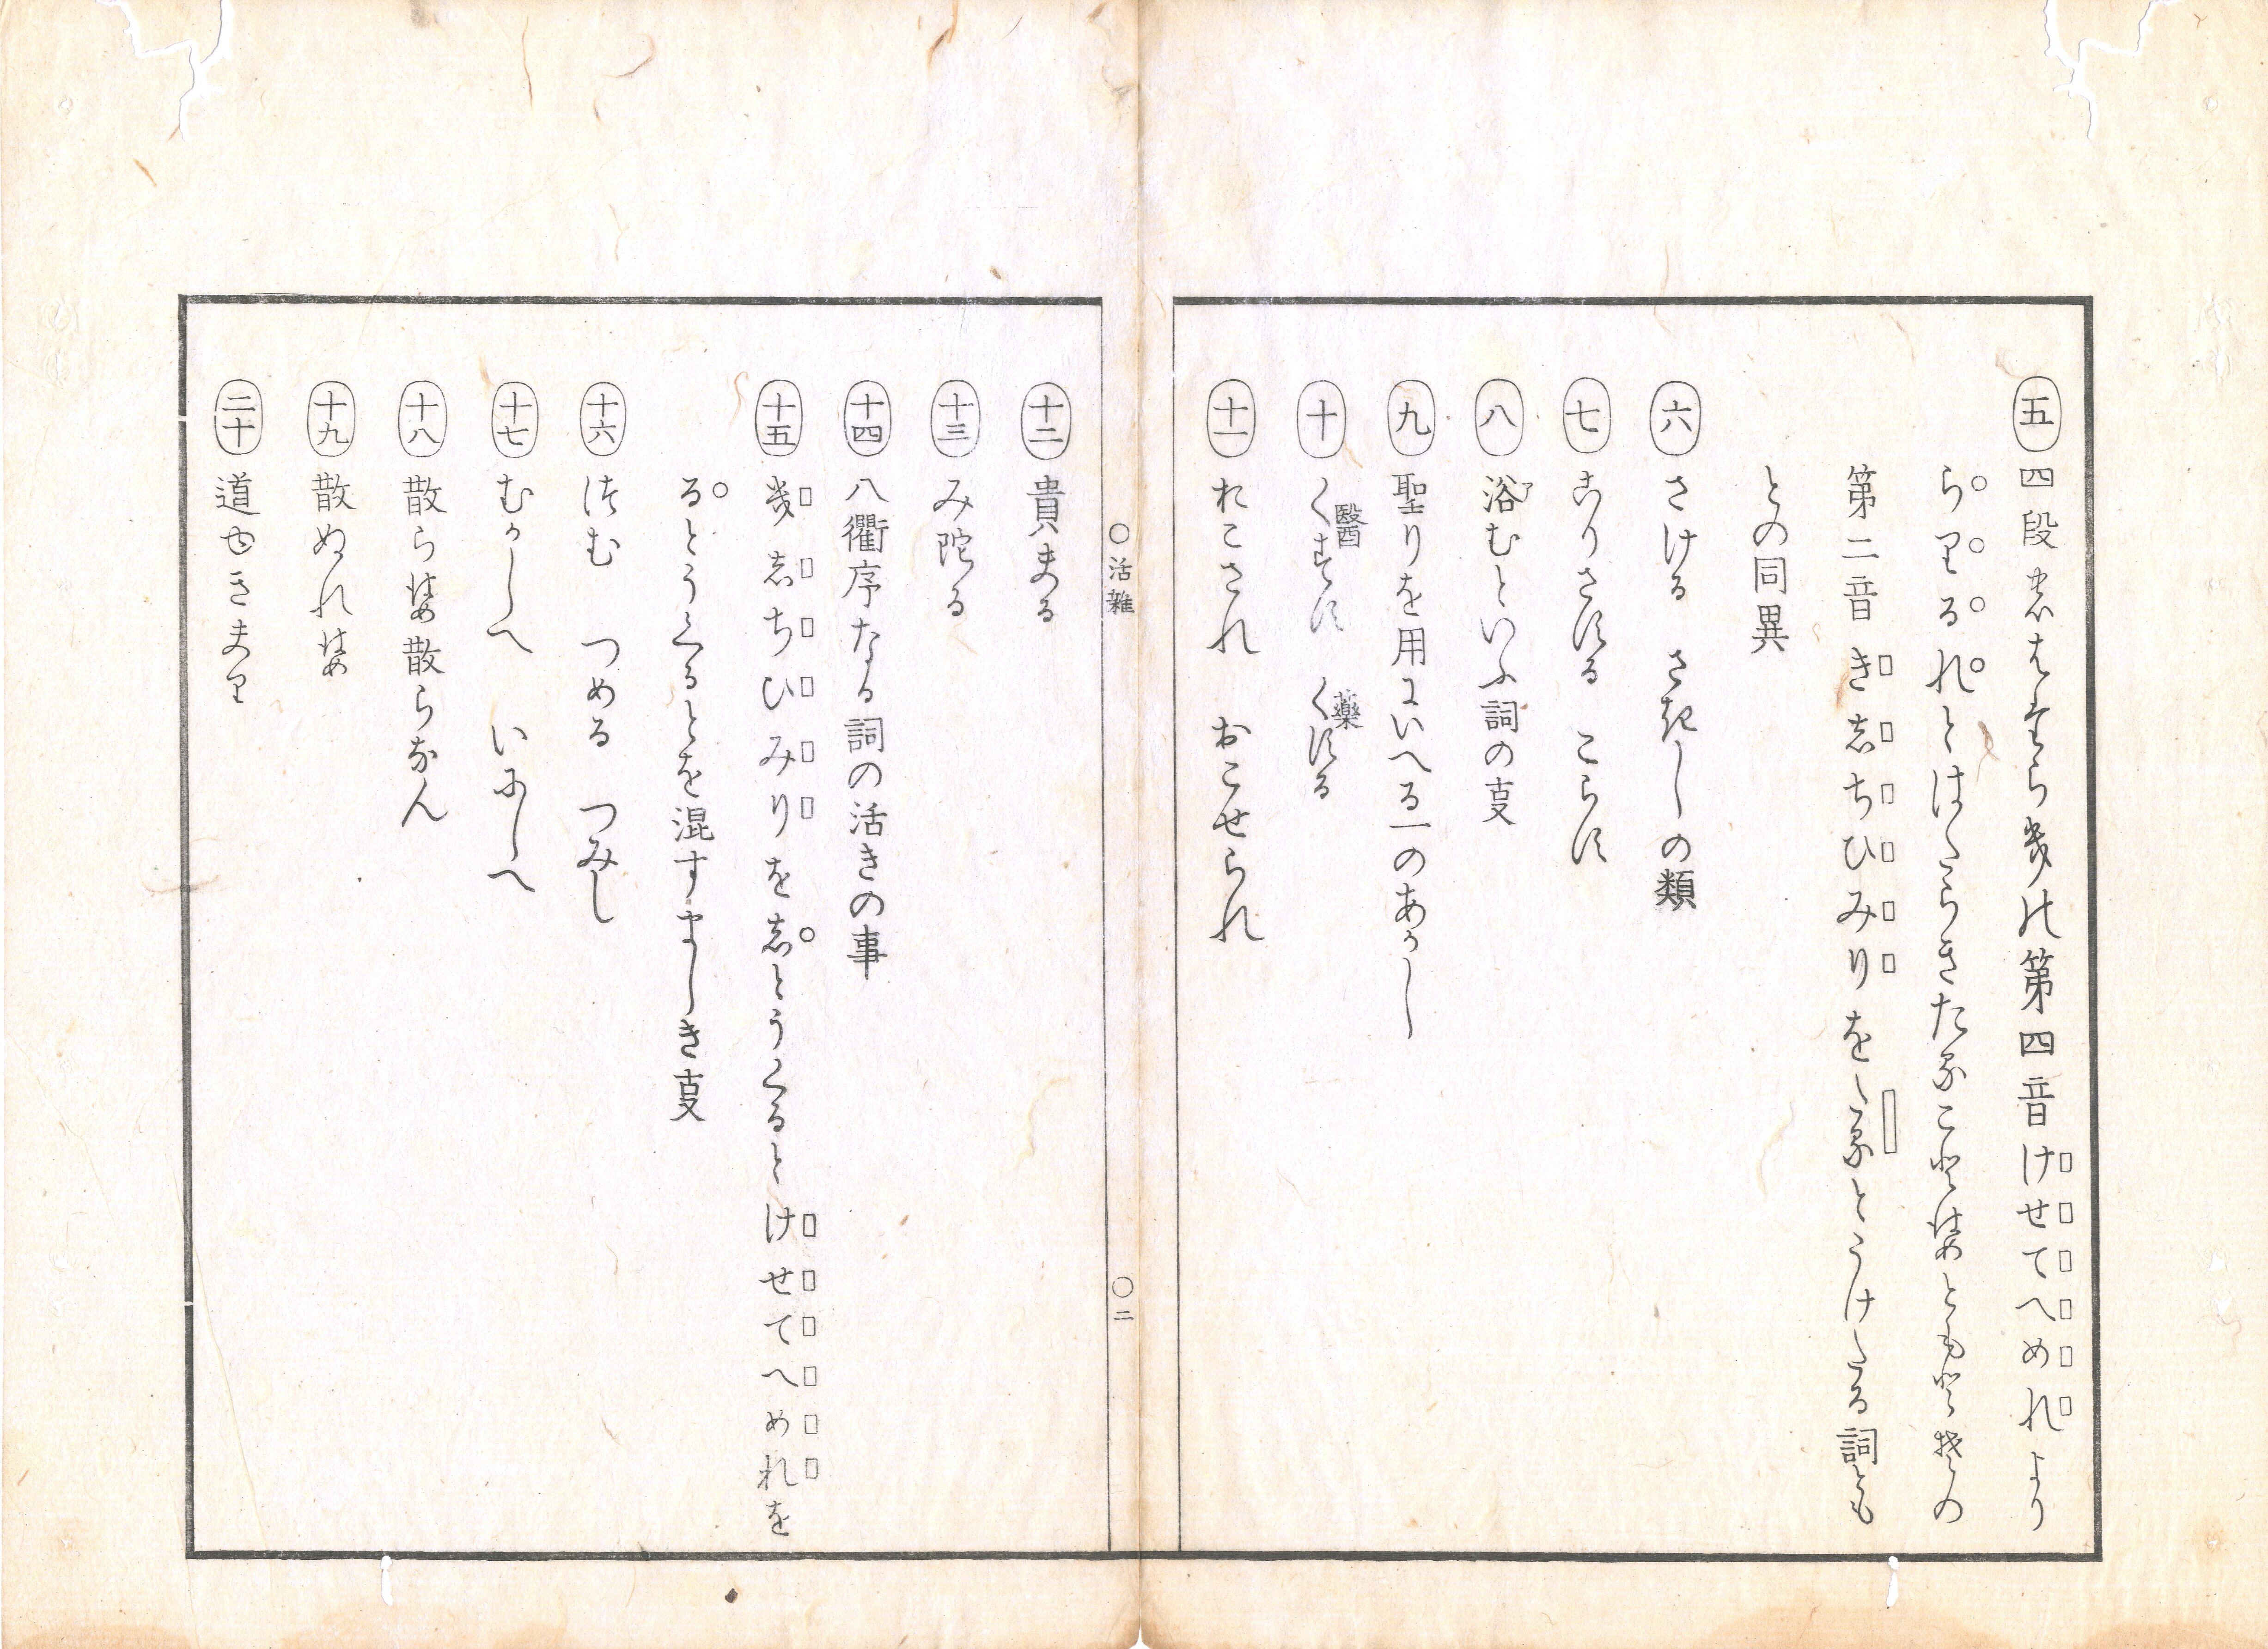 五 四段 はたらきの第四音けせてへめれより
らりるれとはたらきたることはともとその
第二音きしちひみりをたるとうけたる詞とも
との同異
六 さける さきしの類
七 こりさする こらす
八 浴むといふ詞の事
九 聖りを用にいへる一のあかし
十 くすす 醫 くする 藥
十一 おこされ おこせられ
○活雜 ○二
十二 貴まる
十三 み陀る
十四 八衢序なる詞の活きの事
十五 きしちひみりをしとうくるとけせてへめれを
るとうくるとを混すましき事
十六 つむ つめる つみし
十七 むかしへ いにしへ
十八 散らは散らなん
十九 散ぬれは
二十 道